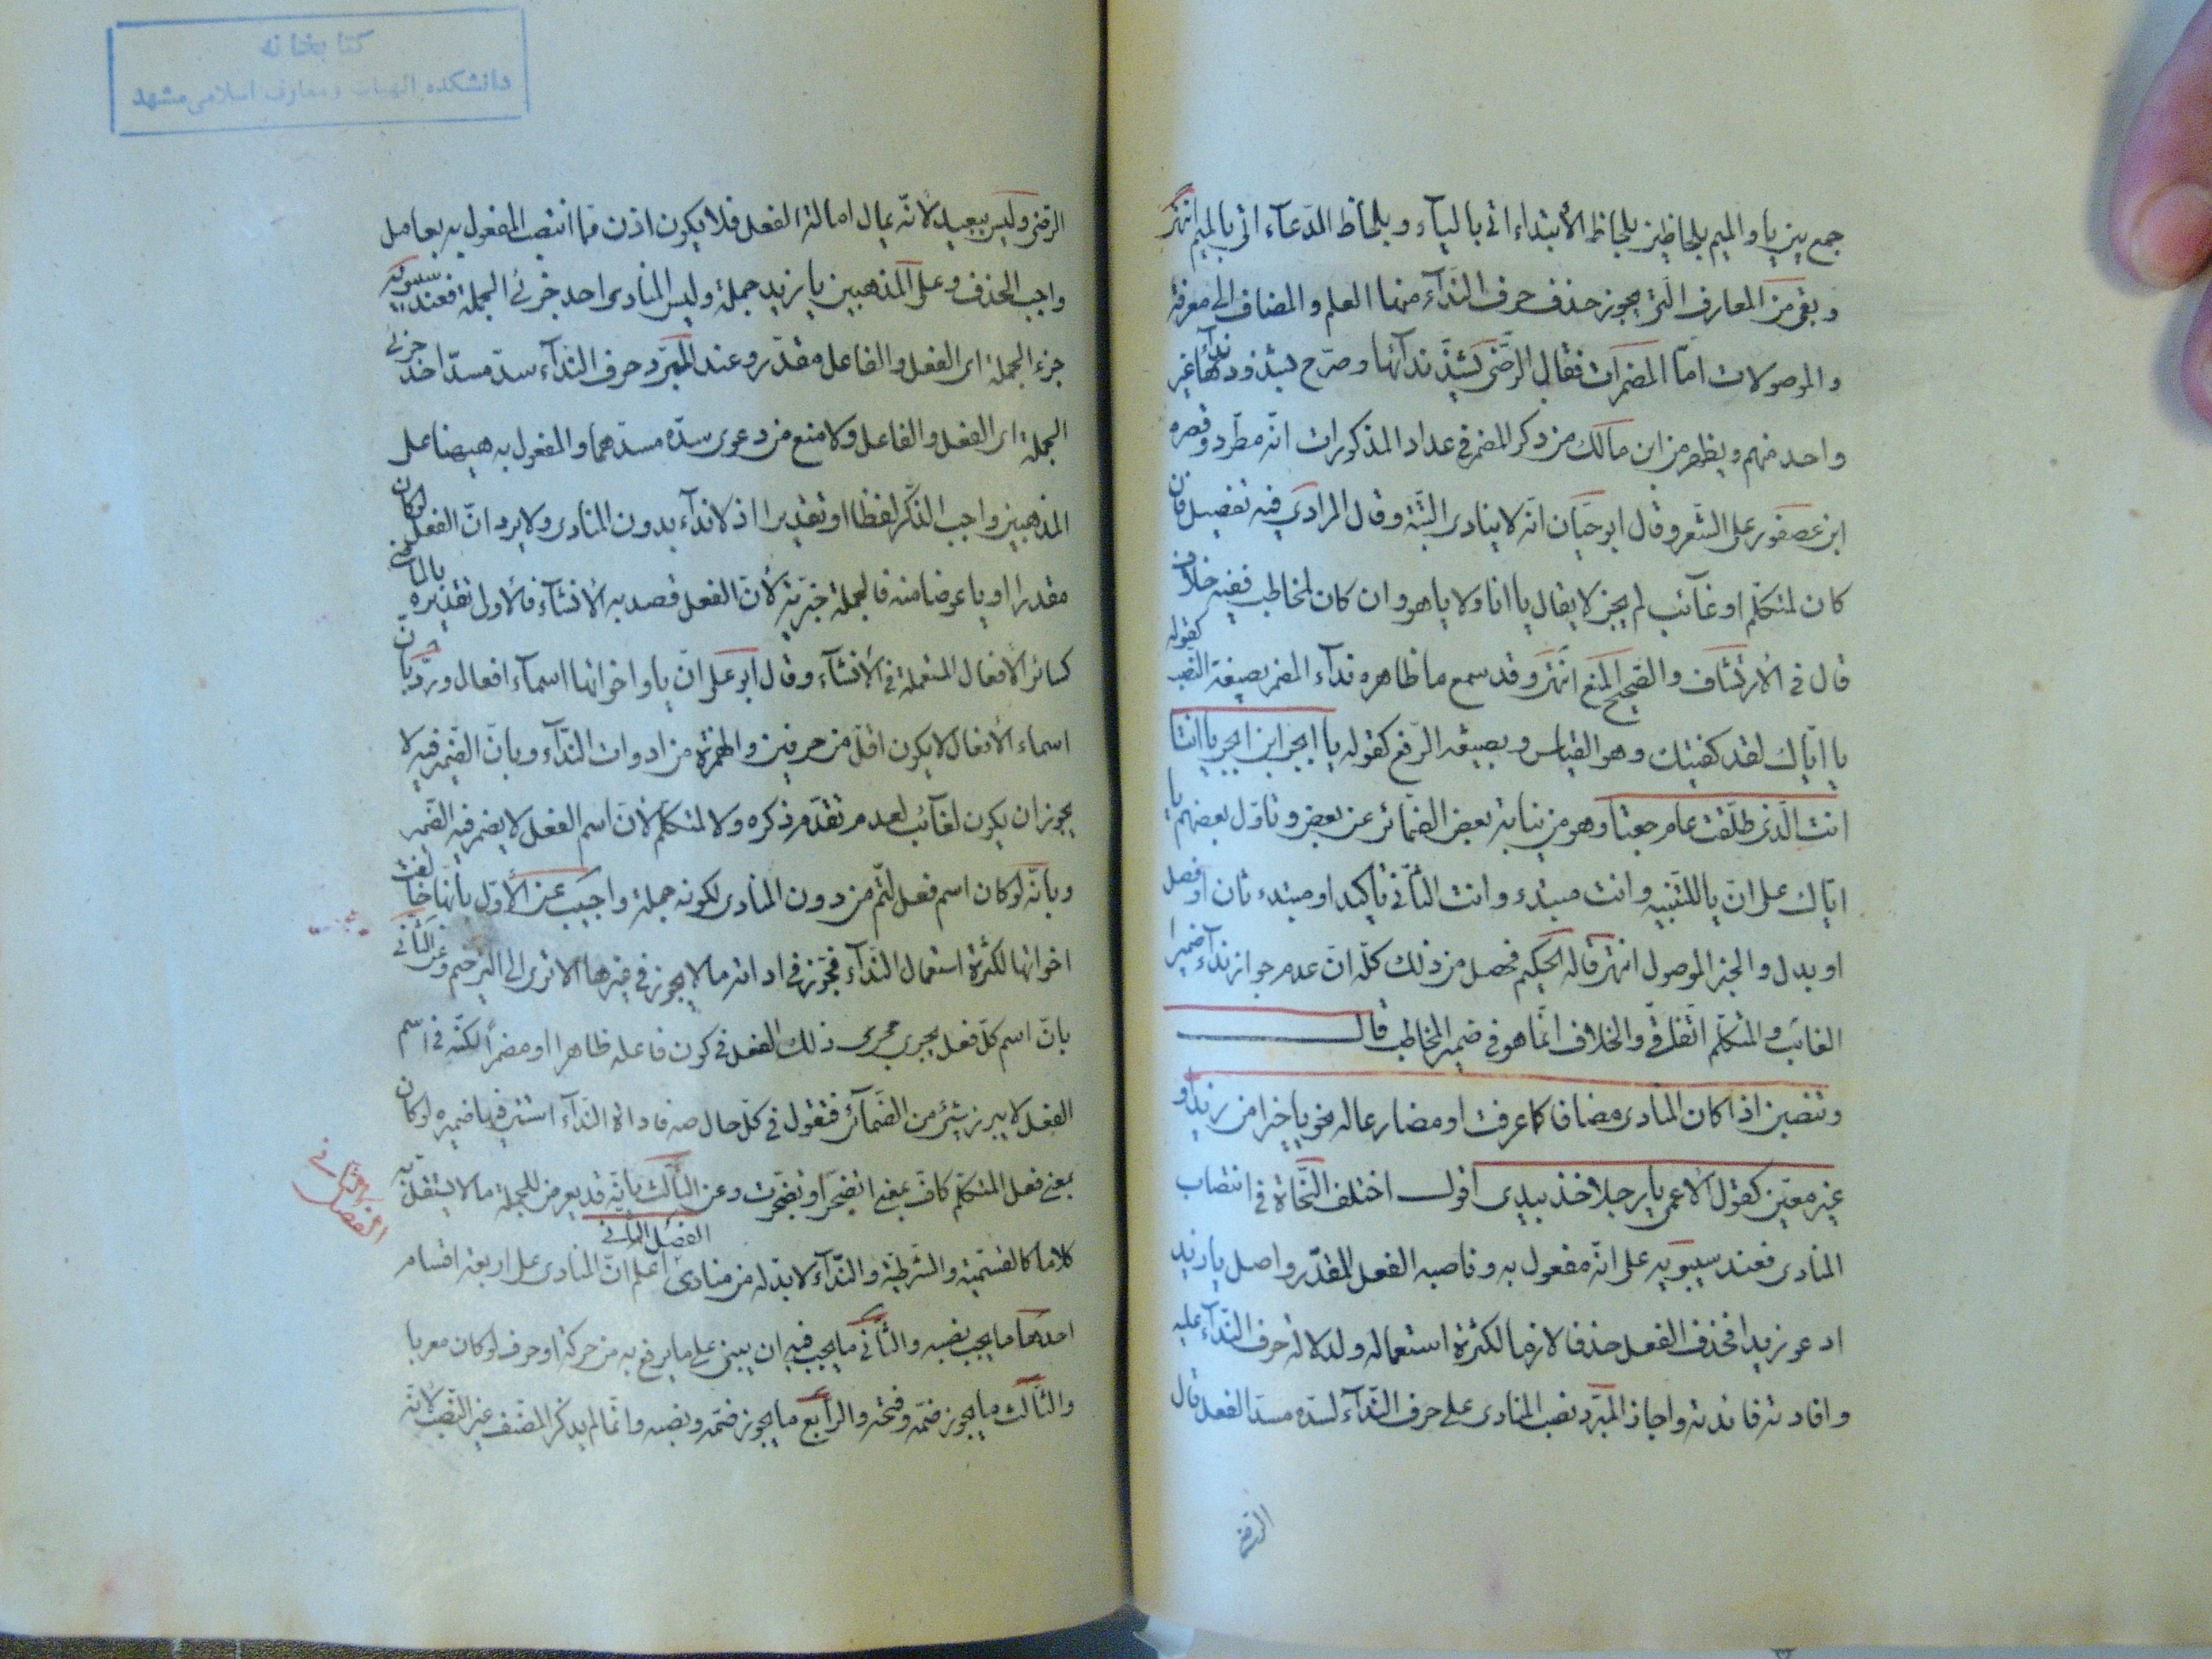 جمع بين يا والميم بلحاظين بلحاظ الأبتداء اتى بالياء وبلحاظ الدّعآء اتى بالميم انتهى
وبقى من المعارف الّتى يجوز حذف حرف النّدآء منها العلم والمضاف الى معرفة
والموصولات امّا المضمرات فقال الرّضى يشذّ ندآئها وصرّح بشذوذ ندآئها غير
واحد منهم ويظهر من ابن مالك من ذكر المضمر فى عداد المذكورات انّه مطّرد وقصره
ابن عصفور على الشّعر وقال ابو حيّان انّه لا ينادى البتّة وقال المرادي فيه تفصيل فان
كان لمتكلّم او غآئب لم يجز لا يقال يا انا ولا يا هو وان كان لمخاطب ففيه خلاف
قال فى الأرتشاف والصّحيح المنع انتهى وقد سمع ما ظاهره ندآء المضمر بصيغة النّصب كقوله
يا ايّاك لقد كفيتك وهو القياس وبصيغة الرّفع كقوله يا ابجر ابن ابجر يا انتا
انت الّذى طلّقت عام جعتا وهو من نيابة بعض الضّمائر عن بعض وتاوّل بعضهم يا
ايّاك على انّ يا للتّنبيه وانت مبتدء وانت الثّانى تأكيد او مبتدء ثان او فصل
او بدل والخبر الموصول انتهى قاله الحكيم فحصل من ذلك كلّه انّ عدم جواز ندآء ضمير
الغائب والمتكلّم اتّفاقى والخلاف انّما هو فى ضمير المخاطب قال
وتنصبن اذا كان المنادى مضافا كما عرفت او مضارعا له نحو يا خيرا من زيد او
غير معيّن كقول الأعمى يا رجلا خذ بيدى اقول اختلف النّحاة فى انتصاب
المنادى فعند سيبويه على انّه مفعول به وناصبه الفعل المقدّر واصل يا زيد
ادعو زيدا فحذف الفعل حذفا لازما لكثرة استعماله ولدلالة حرف النّدآء عليه
وافادته فائدته واجاز المبرّد نصب المنادى على حرف النّدآء لسدّه مسدّ الفعل قال
الرضى
كتابخانه
دانشكده الهيات ومعارف اسلامى مشهد
الرّضى وليس ببعيد لانّه يمال امالة الفعل فلا يكون اذن ممّا انتصب المفعول به بعامل
واجب الحذف وعلى المذهبين يا زيد جملة وليس المنادى احد جزئى الجملة فعند سيبويه
جزء الجملة اى الفعل والفاعل مقدّر وعند المبرّد حرف النّدآء سدّ مسدّ احد جزئى
الجملة اى الفعل والفاعل ولا منع من دعوى سدّه مسدّهما والمفعول به هيهنا على
المذهبين واجب الذّكر لفظا او تقديرا اذ لا ندآء بدون المنادى ولا يرد انّ الفعل لو كان
مقدرا او يا عوضا منه فالجملة خبريّة لأنّ الفعل قصد به الأنشآء فالاولى تقديره بالماضى
كسائر الأفعال المتعملة فى الأنشآء وقال ابو على انّ يا واخواتها اسمآء افعال وردّ بانّ
اسماء الأفعال لا يكون اقلّ من حرفين والهمزة من ادوات النّدآء وبانّ الضّمير فيه لا
يجوز ان يكون لغآئب لعدم تقدّم ذكره ولا لمتكلّم لانّ اسم الفعل لا يضمر فيه الضّمير
وبانّه لو كان اسم فعل لتّم من دون المنادى لكونه جملة واجيب عن الأوّل بأنّها خالفت
اخواتها لكثرة استعمال النّدآء فجّوز فى اداته ما لا يجوز فى غيرها الا ترى الى التّرخيم وعن الثّانى
بانّ اسم كلّ فعل يجرى مجرى ذلك الفعل فى كون فاعله ظاهرا او مضمرا لكنّه فى اسم
الفعل لا يبرز شئ من الضّمآئر فتقول فى كلّ حال صه فاداة النّدآء استتر فيها ضميره لو كان
بمعنى فعل المتكلّم كافّ بمعنى اتضجّر او تضجّرت وعن الثّالث بانّه قد يعرض للجملة ما لا يستقلّ به
كلاما كالقسميّة والشّرطيّة والنّدآء لا بدّ له من منادى اعلم انّ المنادى على اربعة اقسام
الفصل الثانى
الفصل الثانى
احدها ما يجب نصبه والثّانى ما يجب فيه ان يبنى على ما يرفع به من حركة او حرف لو كان معربا
والثّالث ما يجوز ضمّه وفتحه والرّابع ما يجوز ضمّه ونصبه وانّما لم يذكر المصّنف غير النّصب لانّه